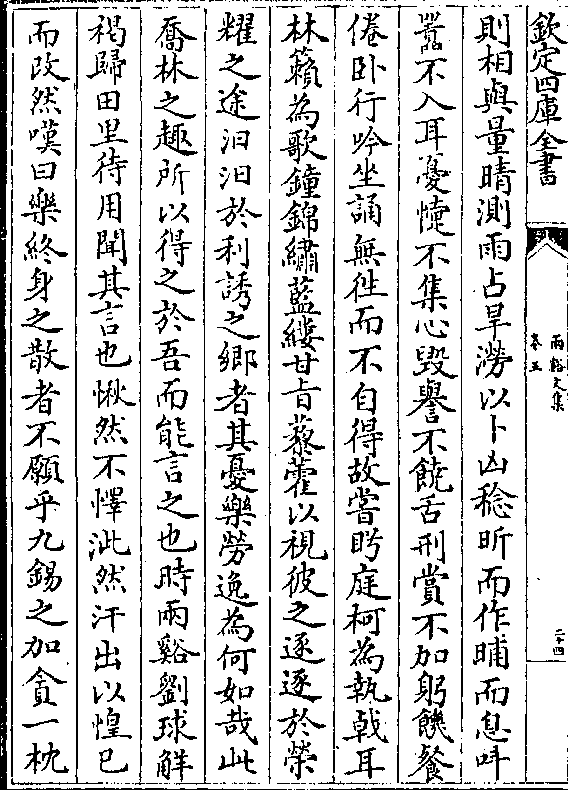 欽定四庫全書
兩谿文集
卷五
二十四
則相與量晴測雨占旱澇以卜凶稔昕而作晡而息叫
囂不入耳憂懥不集心毀譽不饒舌刑賞不加躬饑餐
倦卧行吟坐誦無徃而不自得故嘗盻庭柯為執戟耳
林籟為歌鐘錦繡藍縷甘旨藜藿以視彼之逐逐於榮
耀之途汩汩於利誘之鄉者其憂樂勞逸為何如哉此
喬林之趣所以得之於吾而能言之也時兩谿劉球解
褐歸田里待用聞其言也愀然不懌泚然汗出以惶已
而改然嘆曰樂終身之散者不願乎九錫之加貪一枕